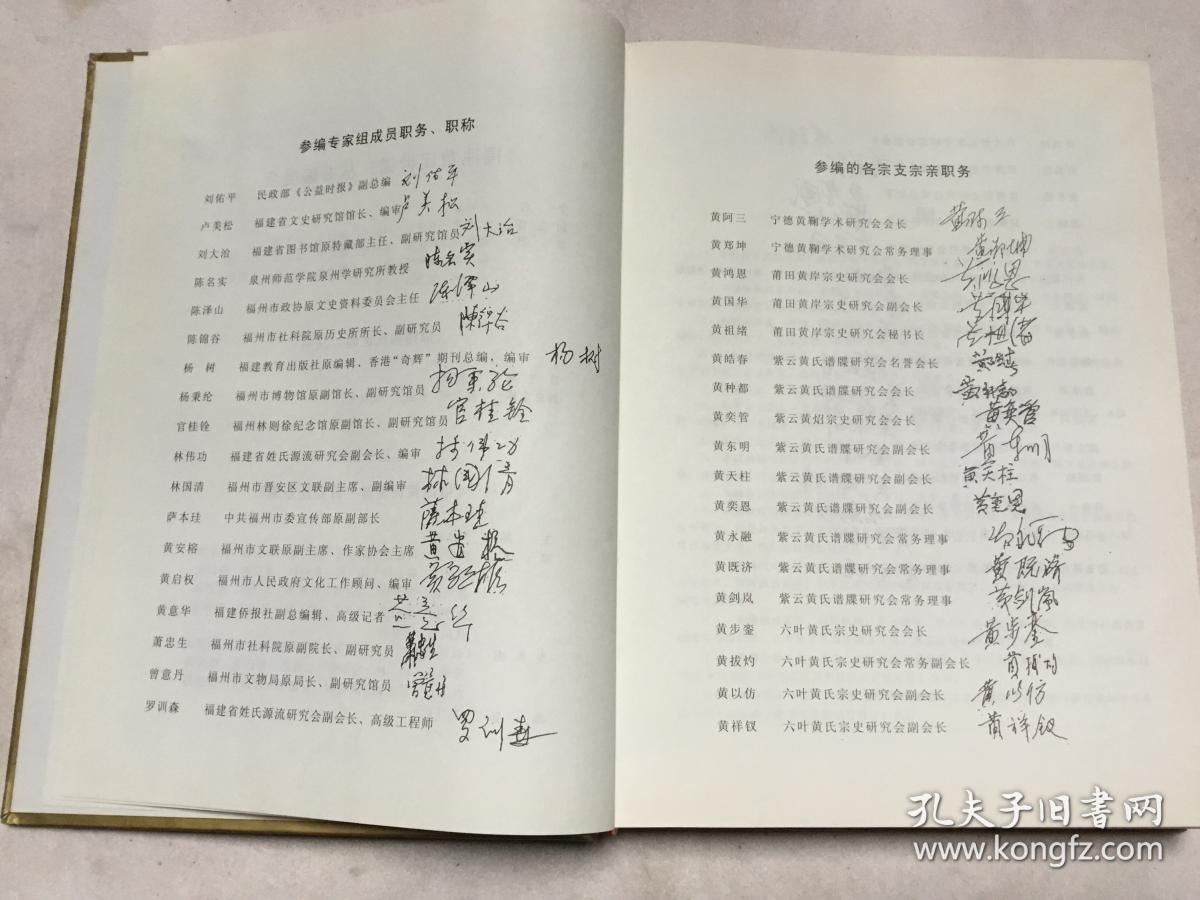 参编专家组成员职务、职称
刘佑平 民政部《公益时报》副总编 刘佑平
卢美松 福建省文史研究馆馆长、编审 卢美松
刘大治 福建省图书馆原特藏部主任、副研究馆员 刘大治
陈名实 泉州师范学院泉州学研究所教授 陈名实
陈泽山 福州市政协原文史资料委员会主任 陈泽山
陈锦谷 福州市社科院原历史所所长、副研究员 陳錦谷
杨树 福建教育出版社原编辑、香港“奇辉”期刊总编,编审 杨树
杨秉纶 福州市博物馆原副馆长、副研究馆员 杨秉纶
官桂铨 福州林则徐纪念馆原副馆长、副研究馆员 官桂铨
林伟功 福建省姓氏源流研究会副会长、编审 林伟功
林国清 福州市晋安区文联副主席、副编审 林国清
萨本珪 中共福州市委宣传部原副部长 薩本珪
黄安榕 福州市文联原副主席、作家协会主席 黄安榕
黄启权 福州市人民政府文化工作顾问、编审
黄意华 福建侨报社副总编辑、高级记者
萧忠生 福州市社科院原副院长、副研究员 萧忠生
曾意丹 福州市文物局原局长、副研究馆员 曾意丹
罗训森 福建省姓氏源流研究会副会长、高级工程师 罗训森
参编的各宗支宗亲职务
黄阿三 宁德黄鞠学术研究会会长 黄阿三
黄郑坤 宁德黄鞠学术研究会常务理事 黄郑坤
黄鸿恩 莆田黄岸宗史研究会会长 黄鸿恩
黄国华 莆田黄岸宗史研究会副会长 黄国华
黄祖绪 莆田黄岸宗史研究会秘书长 黄祖绪
黄皓春 紫云黄氏谱牒研究会名誉会长
黄种都 紫云黄氏谱牒研究会会长
黄奕管 紫云黄炤宗史研究会会长 黄奕管
黄东明 紫云黄氏谱牒研究会副会长 黄东明
黄天柱 紫云黄氏谱牒研究会副会长 黄天柱
黄奕恩 紫云黄氏谱牒研究会副会长 黄奕恩
黄永融 紫云黄氏谱牒研究会常务理事
黄既济 紫云黄氏谱牒研究会常务理事 黄既济
黄剑岚 紫云黄氏谱牒研究会常务理事 黄剑岚
黄步銮 六叶黄氏宗史研究会会长 黄步銮
黄拔灼 六叶黄氏宗史研究会常务副会长 黄拔灼
黄以仿 六叶黄氏宗史研究会副会长 黄以仿
黄祥钗 六叶黄氏宗史研究会副会长 黄祥钗
孔夫子旧书网
www.kongfz.com